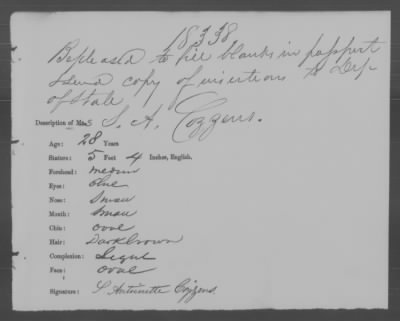 18338
Be pleased to fill blanks in passport
& send copy of insertions to Dep
of State
Description of Mrs S. A. Cozzens.
Age: 28 Years
Stature: 5 Feet 4 Inches, English.
Forehead: medium
Eyes: blue
Nose: Small
Mouth: Small
Chin: oval
Hair: Dark brown
Complexion: Light
Face: oval
Signature: S. Antoinette Cozzens